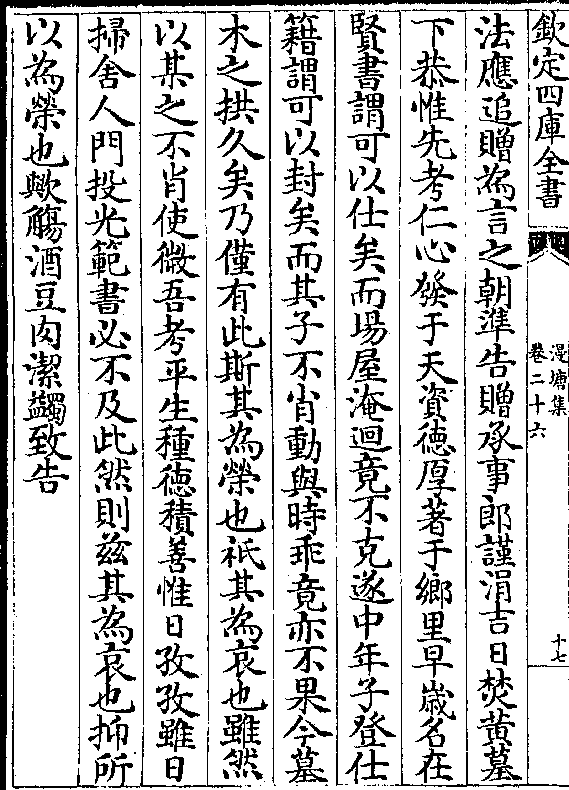 欽定四庫全書
漫塘集
卷二十六
十七
法應追贈為言之朝準告贈承事郎謹涓吉日焚黄墓
下恭惟先考仁心發于天資徳厚著于鄉里早歳名在
賢書謂可以仕矣而場屋淹迴竟不克遂中年子登仕
籍謂可以封矣而其子不肖動與時乖竟亦不果今墓
木之拱久矣乃僅有此斯其為榮也祇其為哀也雖然
以某之不肖使微吾考平生種徳積善惟日孜孜雖日
掃舍人門投光範書必不及此然則兹其為哀也抑所
以為榮也歟觴酒豆肉潔蠲致告